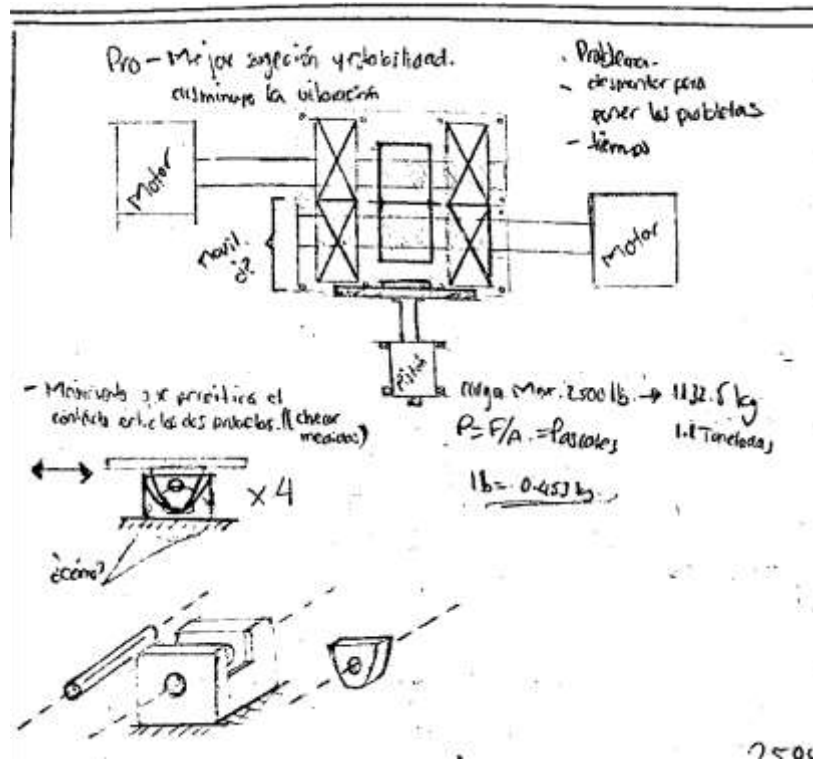 Pro - Mejor sujeción y estabilidad.
disminuye la vibración
. Problema.
- desmontar para
poner las probetas
- tiempo
Motor
Motor
Movil
¿?
Pistón
- Movimiento que permitira el
contacto entre las dos probetas. (checar
medidas)
x4
¿cómo?
carga Max. 2500 lb. → 1132.5 kg
P = F/A. = Pascales
1.1 Toneladas
lb = 0.453 kg